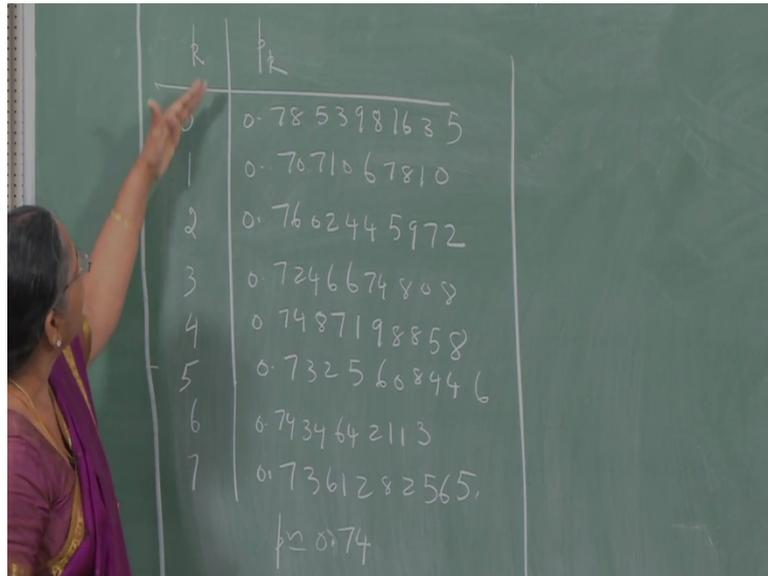 k pk
0 0.7853981635
1 0.7071067810
2 0.7602445972
3 0.7246674808
4 0 7487198858
5 0.7325608446
6 0.7434642113
7 0.7361282565.
p ≃ 0.74